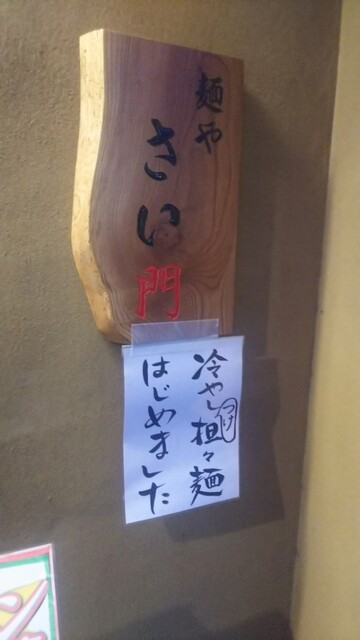 麺や
さい門
冷やし担々麺
つけ
はじめました